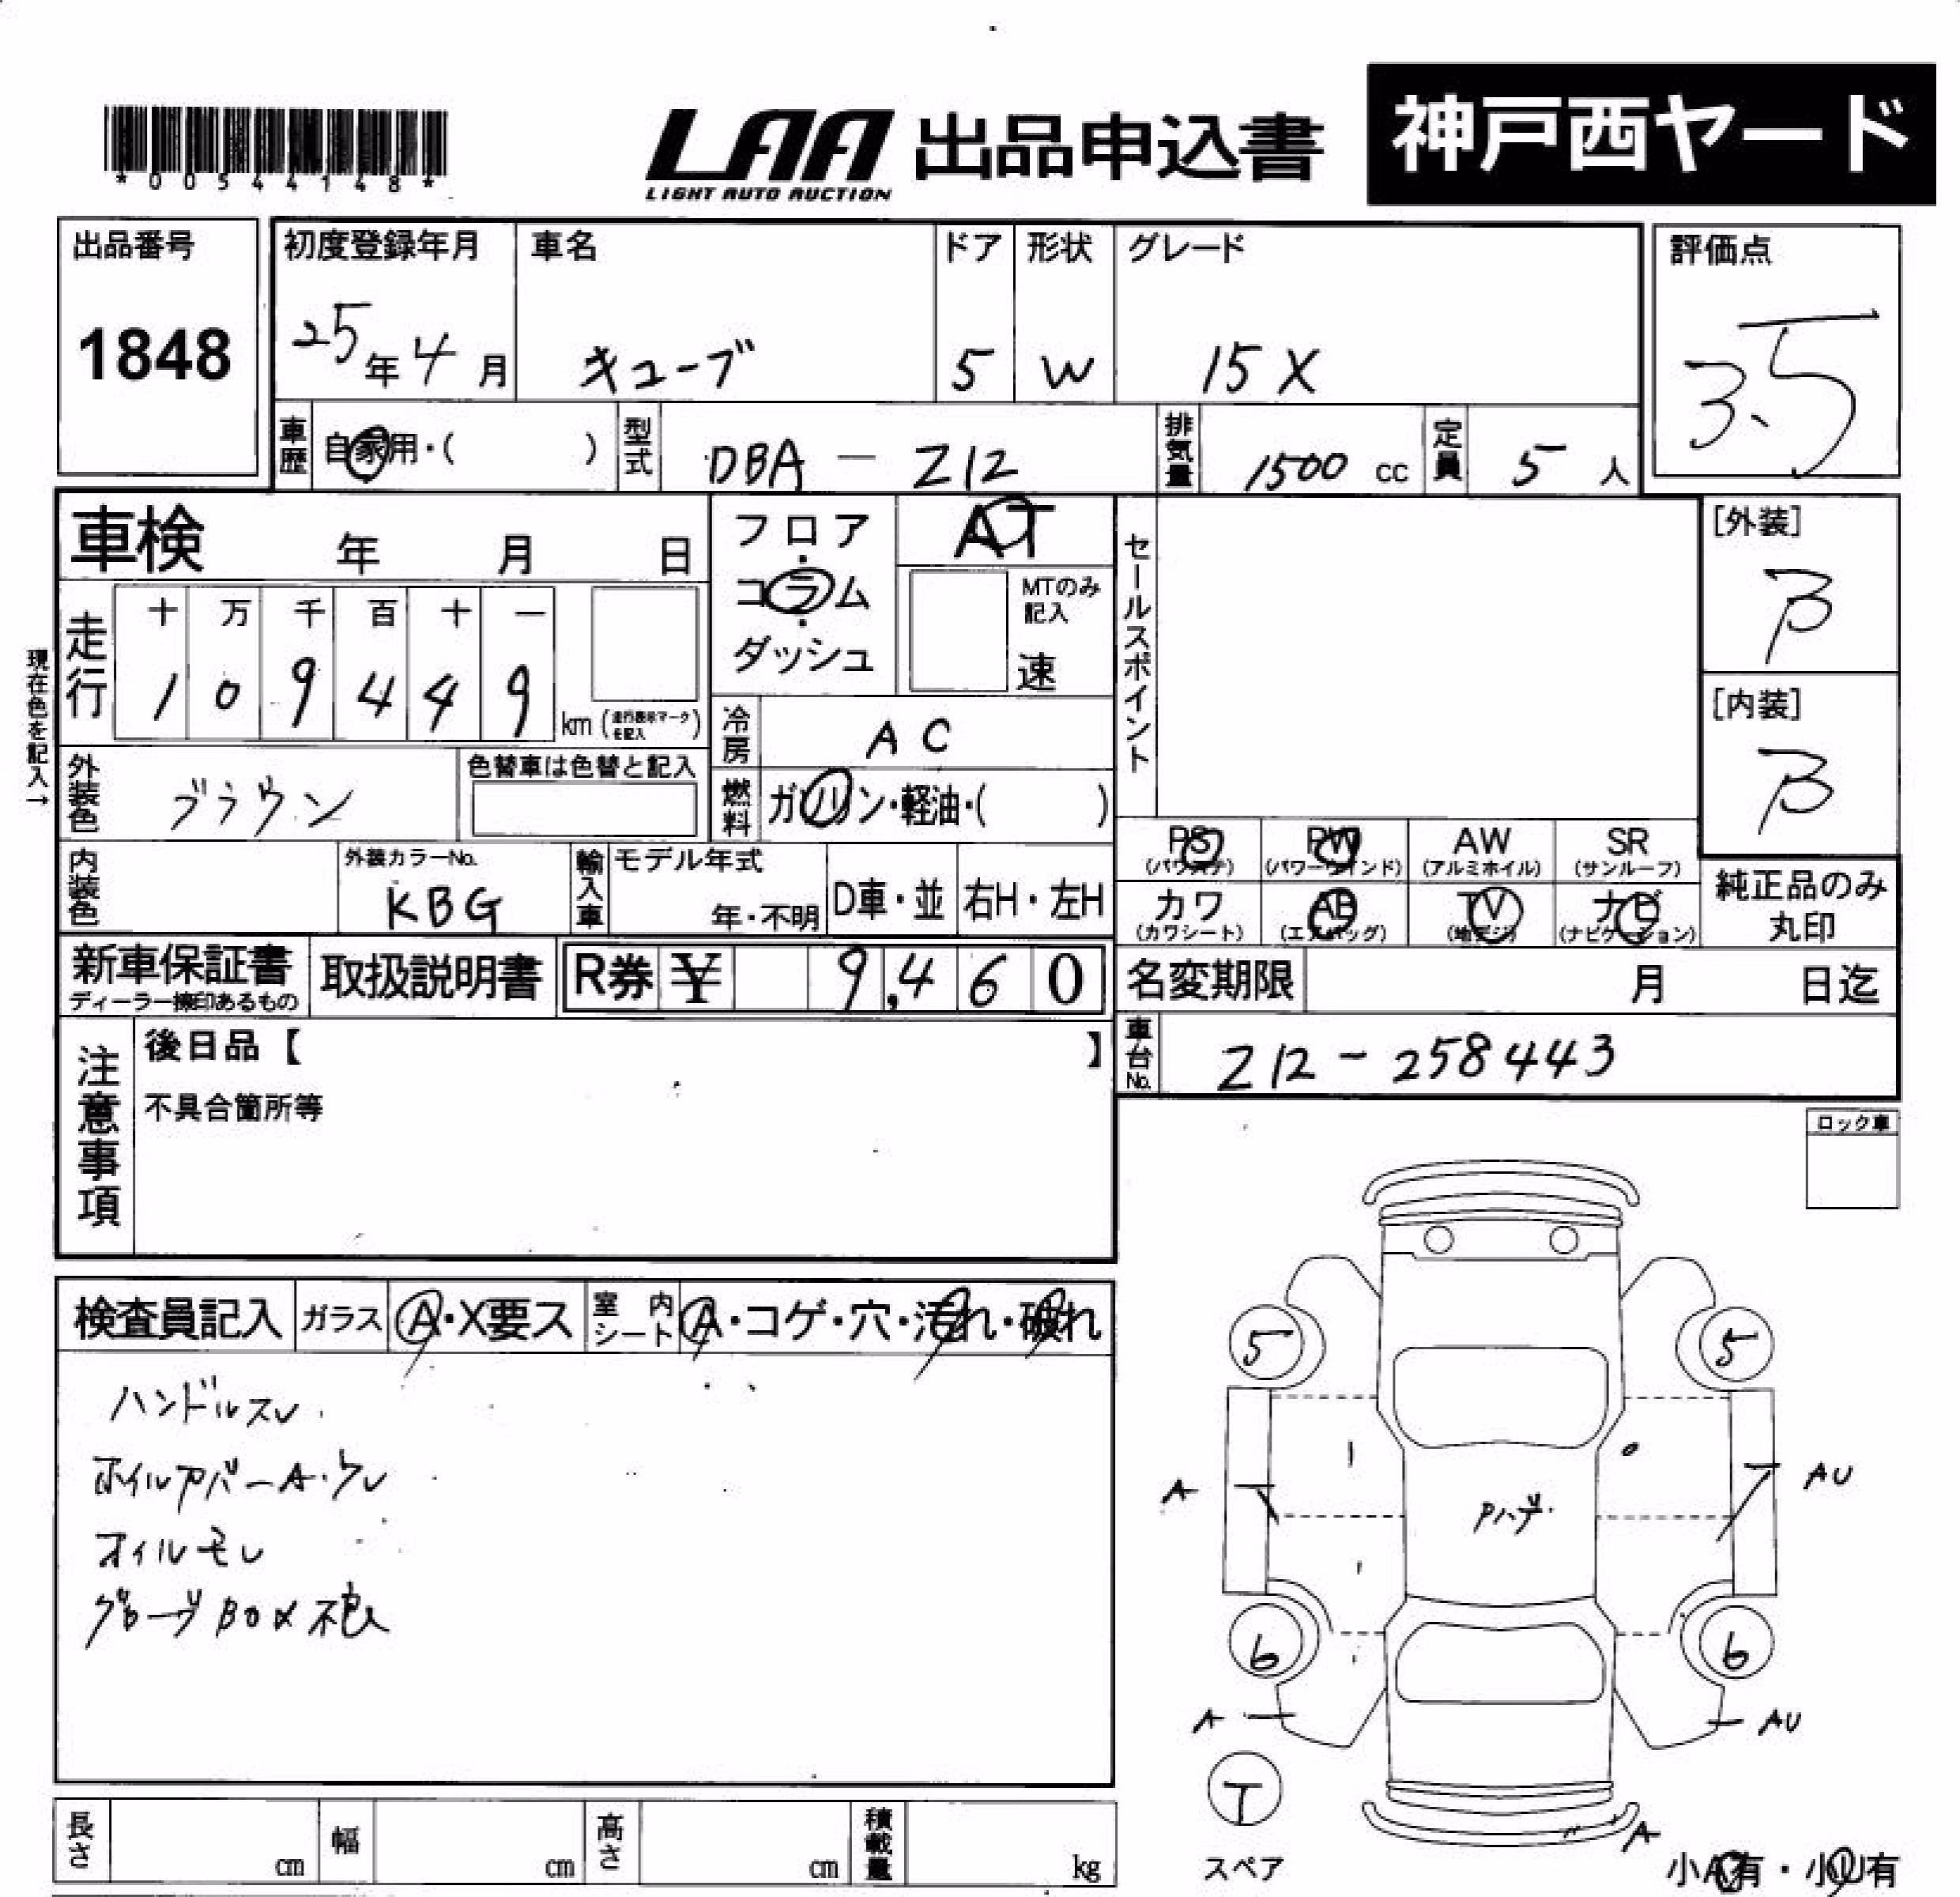 *00544148*
LAA 出品申込書 神戸西ヤード
LIGHT AUTO AUCTION
出品番号 1848
初度登録年月 25年4月
車名 キューブ
ドア 5
形状 W
グレード 15X
評価点 3.5
車歴 自家用・( )
型式 DBA - Z12
排気量 1500 cc
定員 5人
車検 年 月 日
フロア・コラム・ダッシュ
AT
MTのみ記入 速
セールスポイント
[外装] B
[内装] B
現在色を記入→
走行 十 万 千 百 十 一
1 0 9 4 4 9 km (走行表示マークを記入)
冷房 AC
外装色 ブラウン
色替車は色替と記入
燃料 ガソリン・軽油・( )
内装色
外装カラーNo. KBG
輸入車 モデル年式 年・不明 D車・並 右H・左H
PS (パワステ) PW (パワーウインド) AW (アルミホイル) SR (サンルーフ)
カワ (カワシート) AB (エアバッグ) TV (地デジ) ナビ (ナビゲーション)
純正品のみ丸印
新車保証書 ディーラー捺印あるもの
取扱説明書
R券 ¥ 9,460
名変期限 月 日迄
車台No. Z12-258443
注意事項
後日品【 】
不具合箇所等
ロック車
検査員記入 ガラス A・X要ス 室内シート A・コゲ・穴・汚れ・破れ
ハンドルスレ
ホイルカバーA・ワレ
オイルモレ
グローブBOX
5 5
A AU
Pハゲ
6 6
A AU
T
スペア
A
小A有・小U有
長さ cm 幅 cm 高さ cm 積載量 kg